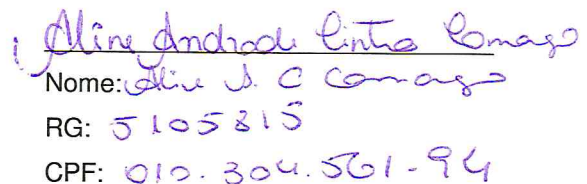 Aline Andrade Cintra Camargo
Nome: Aline A. C Camargo
RG: 5105815
CPF: 010.304.561-94